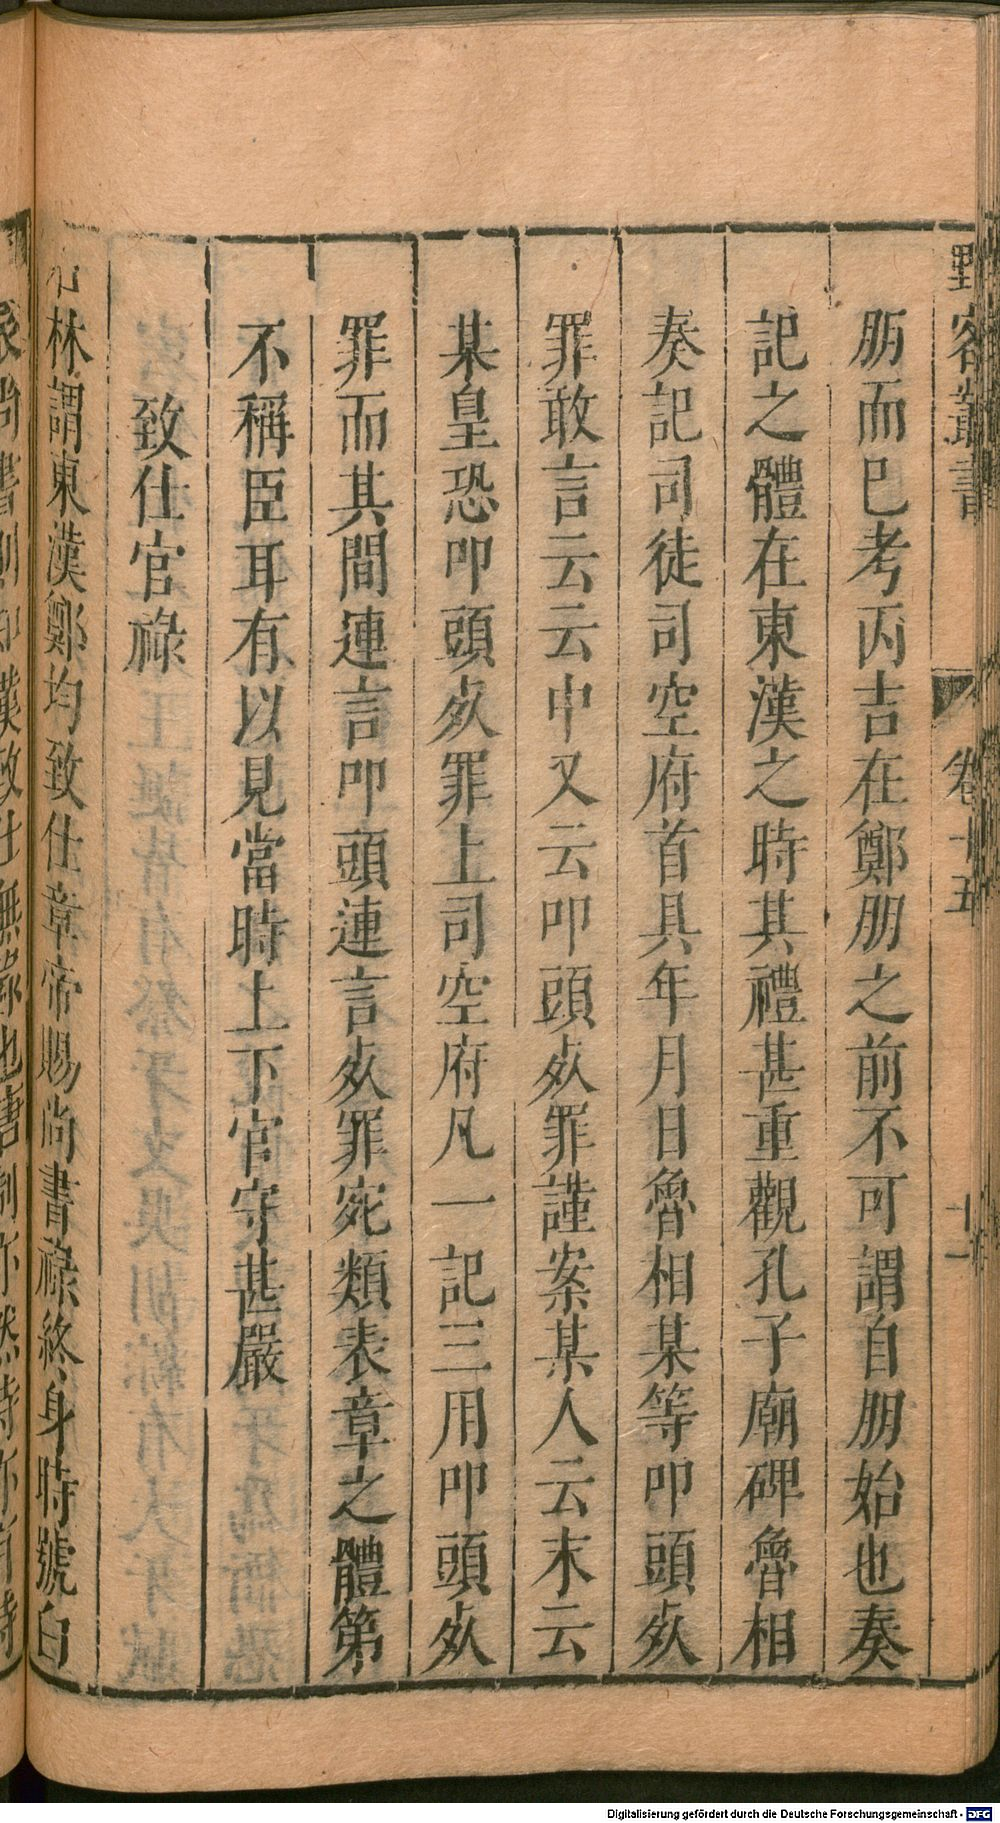 野客叢書
卷十五
十一
朋而已考丙吉在鄭朋之前不可謂自朋始也奏
記之體在東漢之時其禮甚重觀孔子廟碑魯相
奏記司徒司空府首具年月日魯相某等叩頭死
罪敢言云云中又云叩頭死罪謹案某人云末云
某皇恐叩頭死罪上司空府凡一記三用叩頭死
罪而其間連言叩頭連言死罪宛類表章之體第
不稱臣耳有以見當時上下官守甚嚴
致仕官祿
林謂東漢鄭均致仕章帝賜尚書祿終身時號白
尚書則知漢致仕無祿也唐制亦然時亦有特
Digitalisierung gefördert durch die Deutsche Forschungsgemeinschaft - DFG